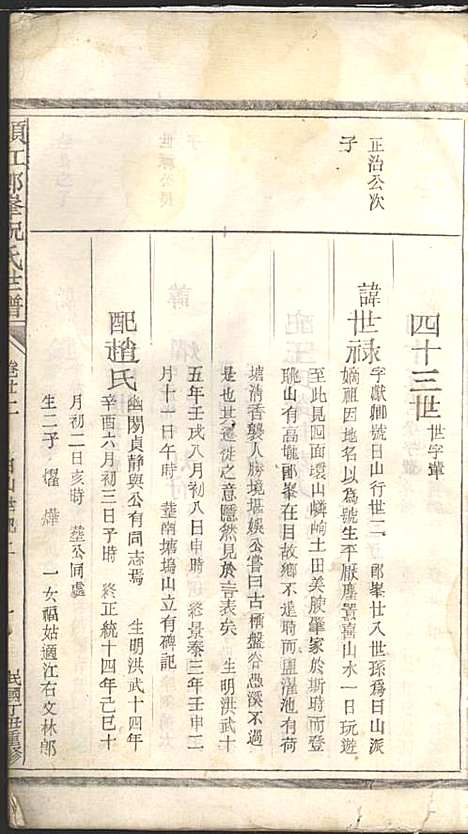 四十三世 世字輩
正治公次
子
諱世祿 字獻卿號日山行世二 郎峯廿入世孫為日山派
嫡祖因地名以為號生平厭塵囂喜山水一日玩遊
至此見四面環山鱗 土田美腴肇家於斯琦而登
眺山有高巍郎峯在目故鄉不遠琦而盥濯池有荷
塘清香襲人勝境堪娛公嘗曰古槓盤谷愚溪不過
是也其遷徙之意隱然見於言表矣 生明洪武十
五年壬戌八月初八日申時 終景泰三年壬申二
月十一日午時 塟南塘塢山立有碑記
配趙氏 幽閒貞靜與公有同志焉 生明洪武十四年
辛酉六月初三日子時 終正統十四年己巳十
月初二日亥時 塟公同處
生二子 燿 燁 一女福姑適江右文林郎
須江郎峯祝氏世譜
卷廿二
民國丁丑重修